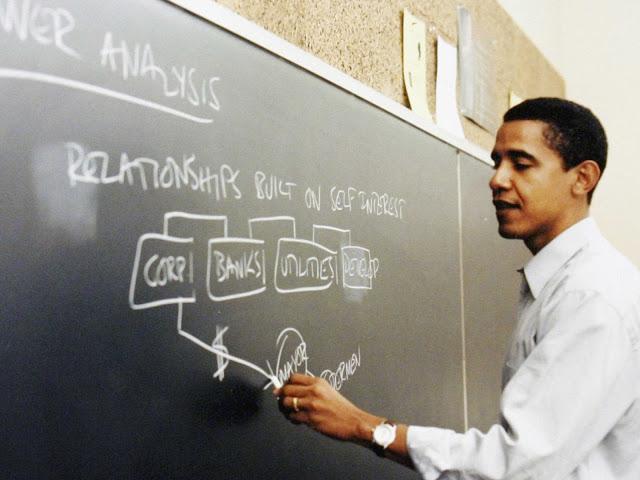 WER ANALYSIS
RELATIONSHIPS BUILT ON SELF INTEREST
CORP BANKS UTILITIES DEVELOP
$
MAYOR